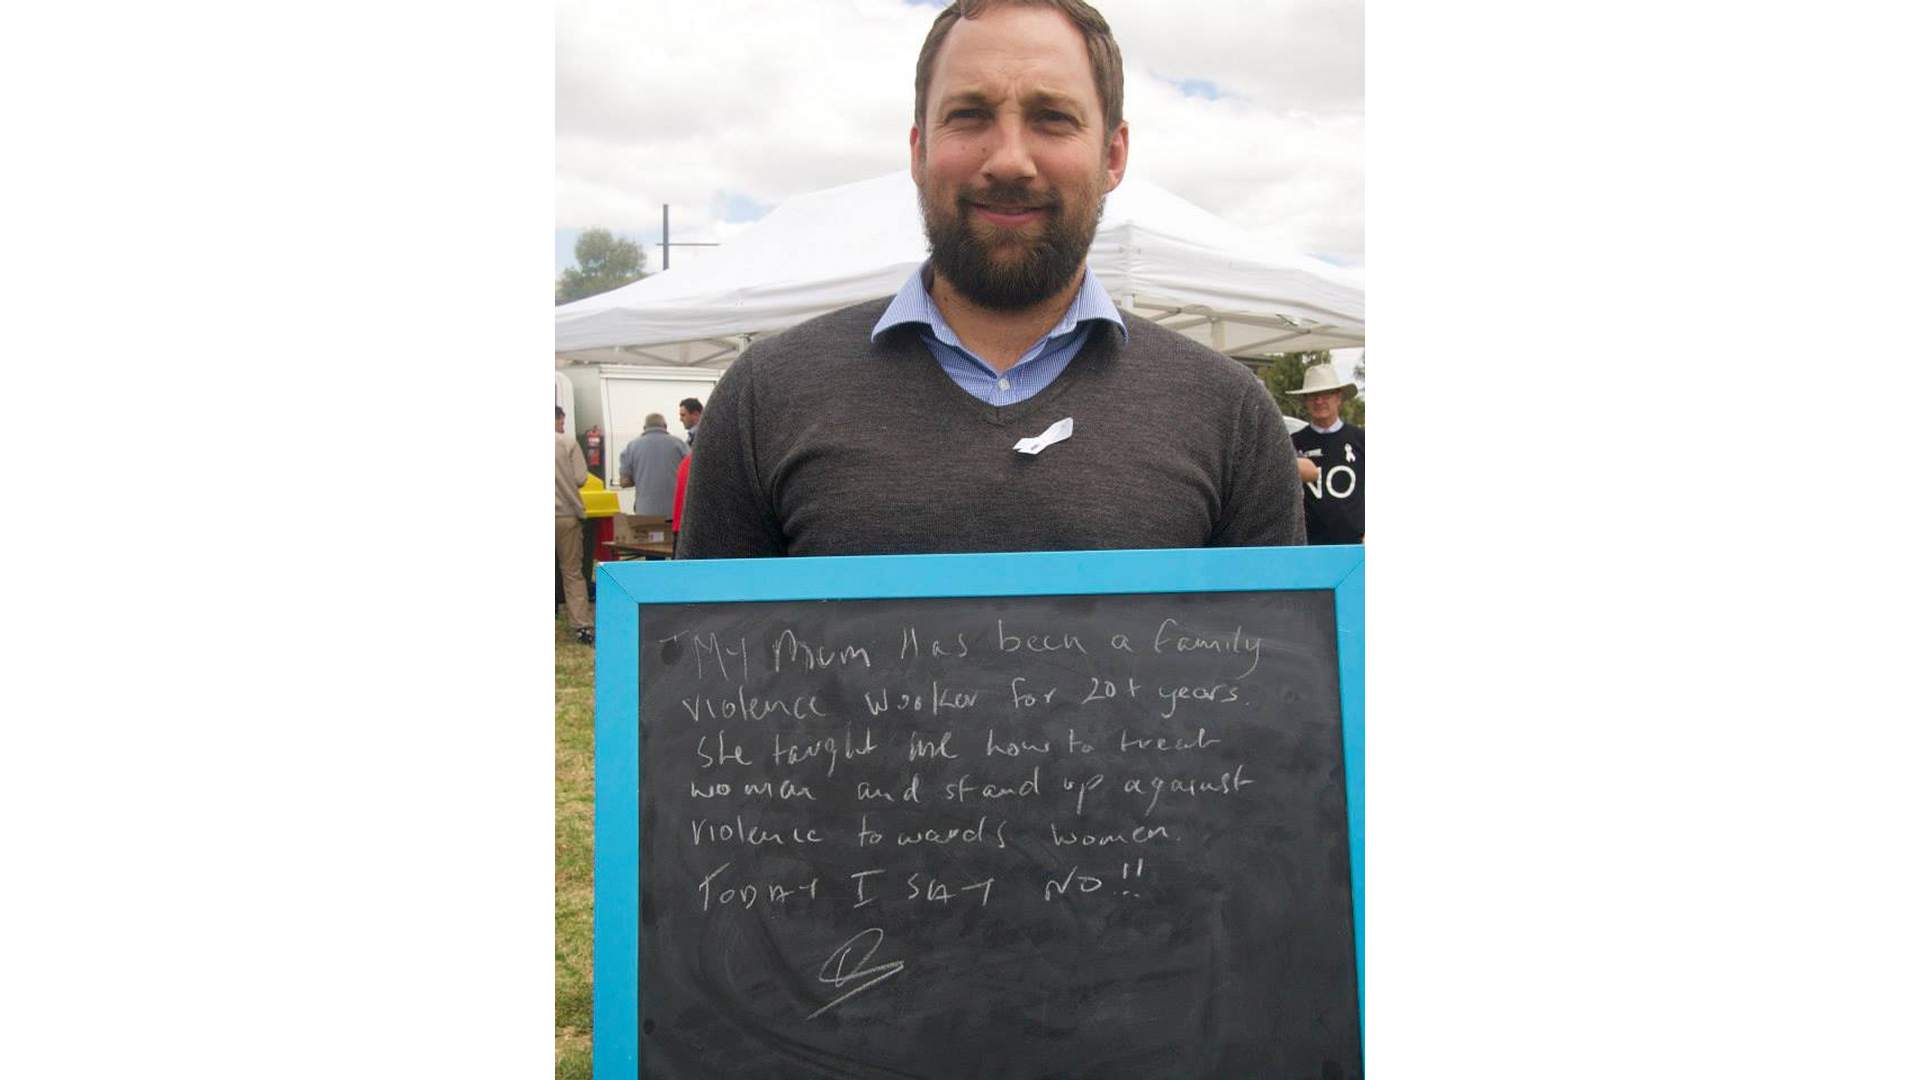 NO
My Mum Has been a family
violence worker for 20+ years.
She taught me how to treat
woman and stand up against
violence towards women.
TODAY I SAY NO!!